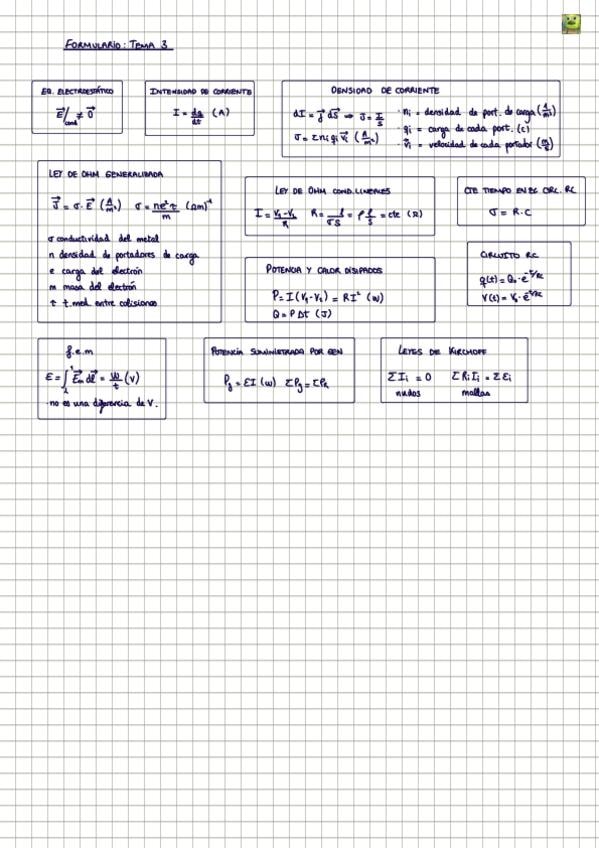 FORMULARIO: TEMA 3
EQ. ELECTROESTÁTICO
E⃗/cond ≠ 0⃗
INTENSIDAD DE CORRIENTE
I = dq/dt (A)
DENSIDAD DE CORRIENTE
dI = j⃗ dS⃗ ⇒ J = I/S
J = Σ ni qi v⃗i (A/m²)
· ni = densidad de port. de carga
· qi = carga de cada port. (C)
· v⃗i = velocidad de cada portador (m/s)
LEY DE OHM GENERALIZADA
J⃗ = σ · E⃗ (A/m²) σ = ne²τ/m (Ωm)⁻¹
σ conductividad del metal
n densidad de portadores de carga
e carga del electrón
m masa del electrón
τ t. med. entre colisiones
LEY DE OHM COND. LINEALES
I = V1 - V2/R R = l/σS = ρ l/S = cte (Ω)
CTE TIEMPO EN EL CIRC. RC
σ = R.C
POTENCIA Y CALOR DISIPADOS
P = I (V1 - V2) = RI² (W)
Q = P Δt (J)
CIRCUITO RC
q(t) = Q0 · e^-t/RC
V(t) = V0 · e^-t/RC
f.e.m
ε = ∫ E⃗m dl⃗ = W/t (V)
· no es una diferencia de V.
POTENCIA SUMINISTRADA POR GEN
Pg = εI (W) ΣPg = ΣPR
LEYES DE KIRCHOFF
ΣIi = 0 ΣRiIi = Σεi
nudos mallas